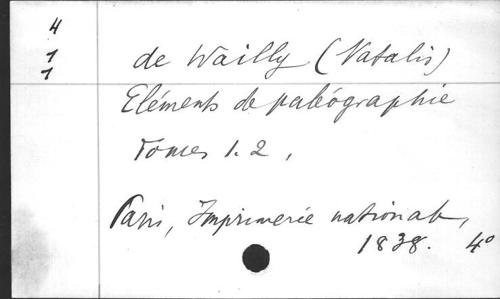 4
1
1
de Wailly (Natalis)
Eléments de paléographie
Tomes 1. 2,
Paris, Imprimerie nationale,
1838. 4°